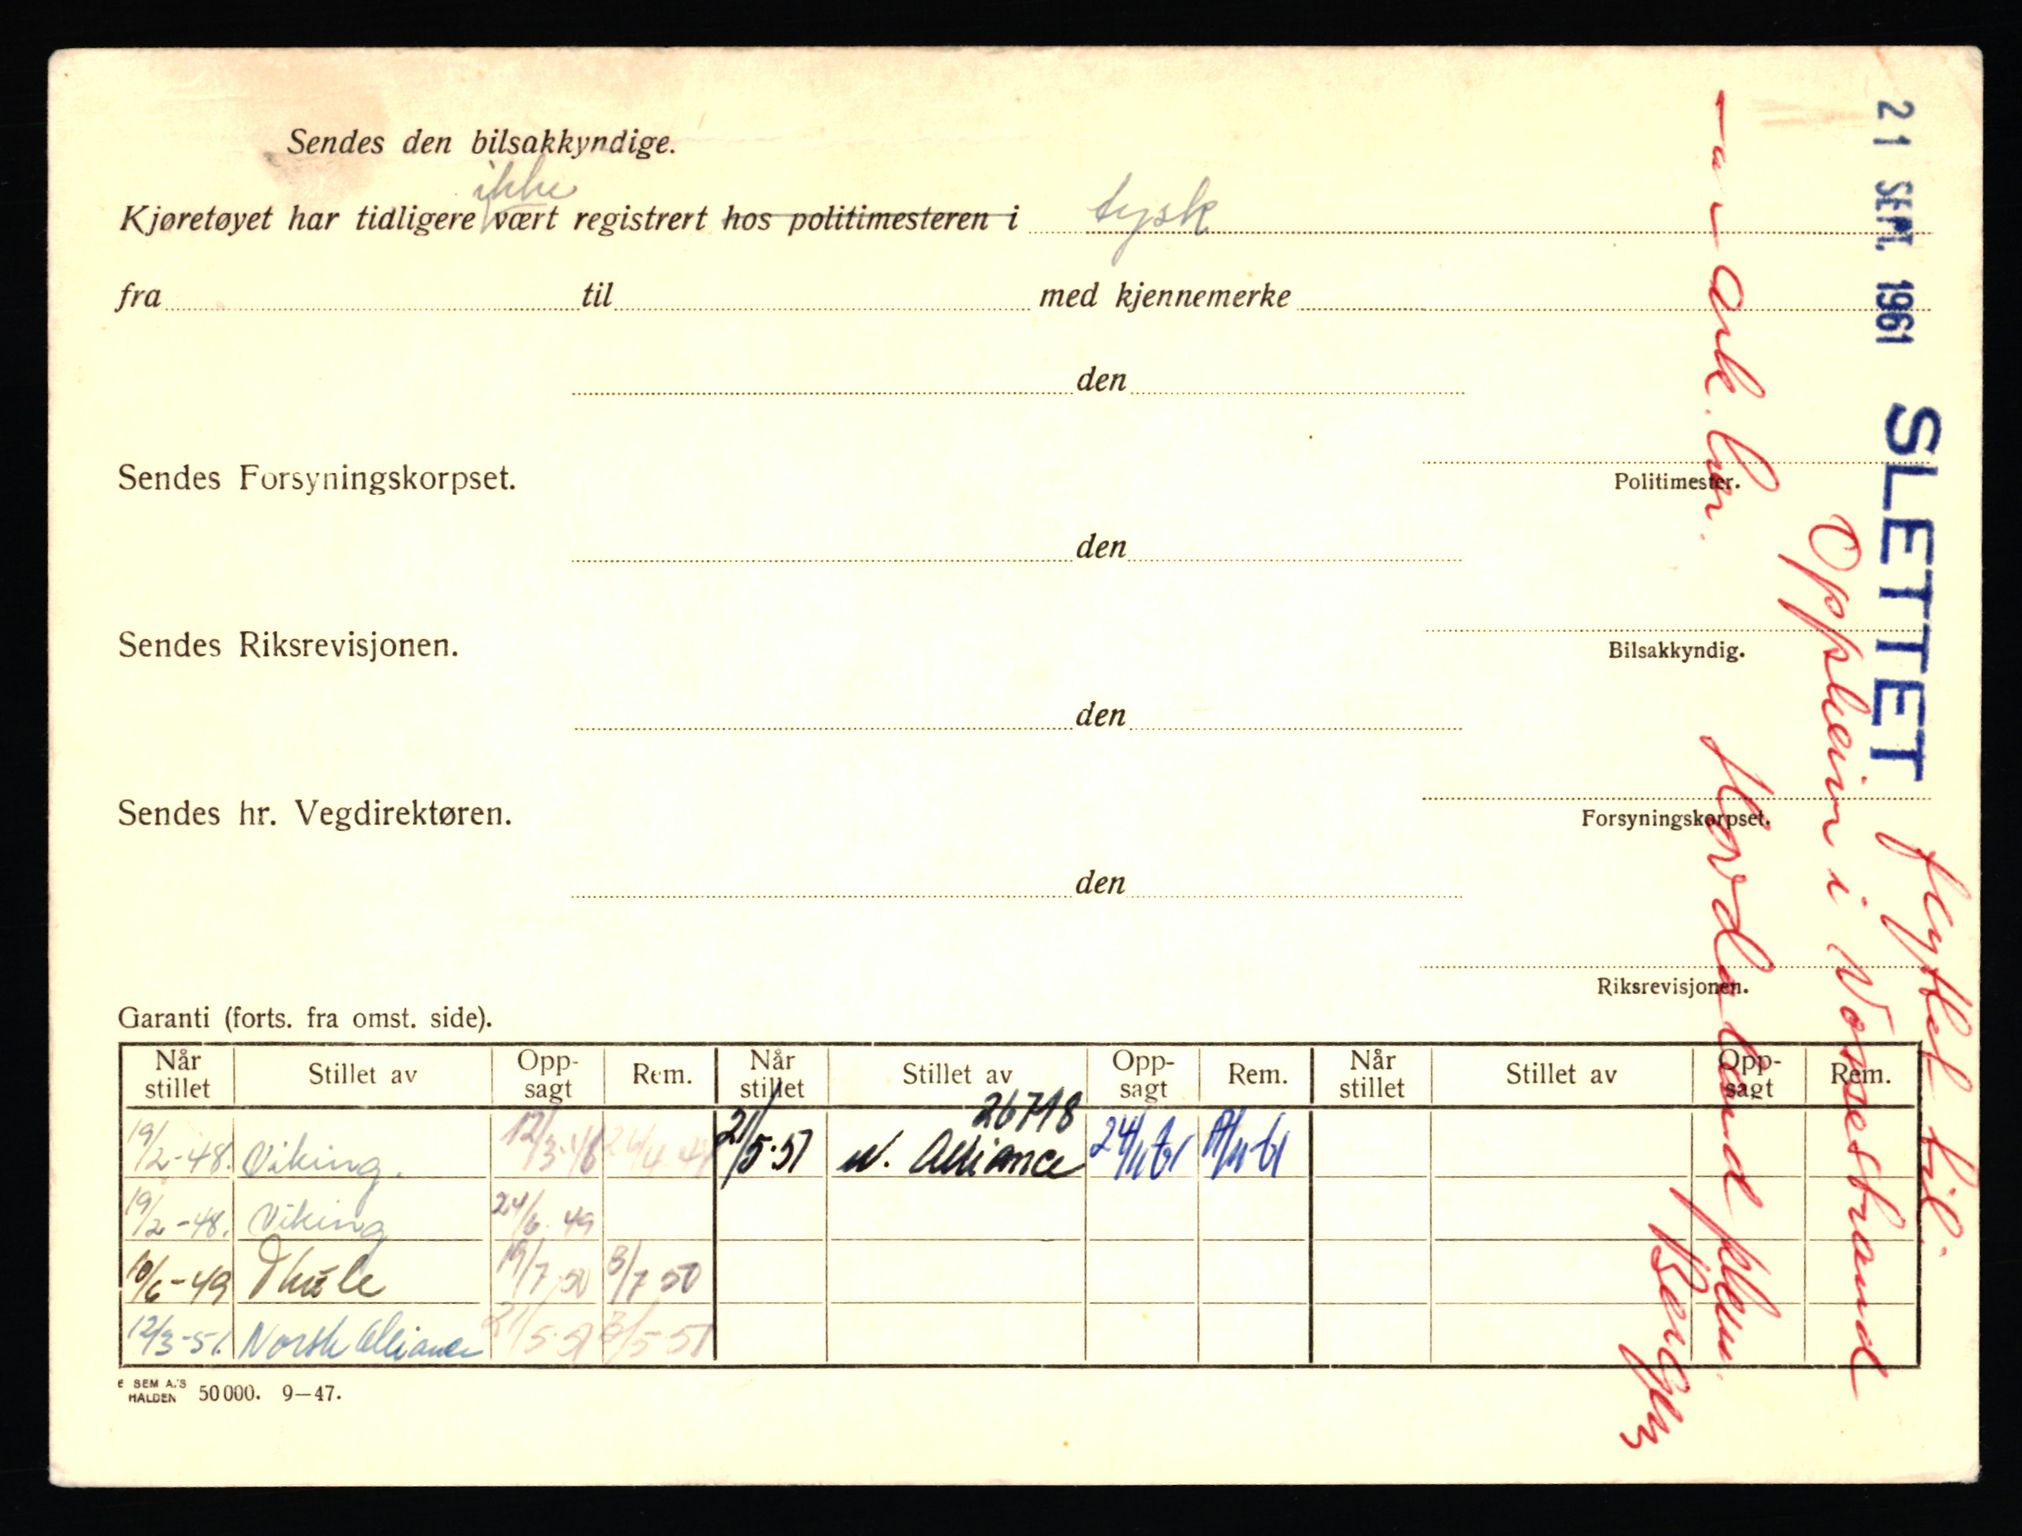 Sendes den bilsakkyndige.
ikke
Kjøretøyet har tidligere vært registrert hos politimesteren i tysk
fra til med kjennemerke
den
Politimester.
Sendes Forsyningskorpset.
den
Bilsakkyndig.
Sendes Riksrevisjonen.
den
Forsyningskorpset.
Sendes hr. Vegdirektøren.
den
Riksrevisjonen.
Garanti (forts. fra omst. side).
Når stillet Stillet av Opp-sagt Rem. Når stillet Stillet av Opp-sagt Rem. Når stillet Stillet av Opp-sagt Rem.
26718
19/2-48. Viking. 12/3-48 21/5-51 N. Alliance
19/2-48. Viking 24/6-49
10/6-49 Thule 19/7 50 3/7 50
12/3-51. Norsk Alliance 21/5-51 3/5-51
SEM A.S HALDEN 50 000. 9—47.
21 SEPT. 1961 SLETTET flyttet til
Oppheim i Vossestrand
ark. Hordaland
Bergen